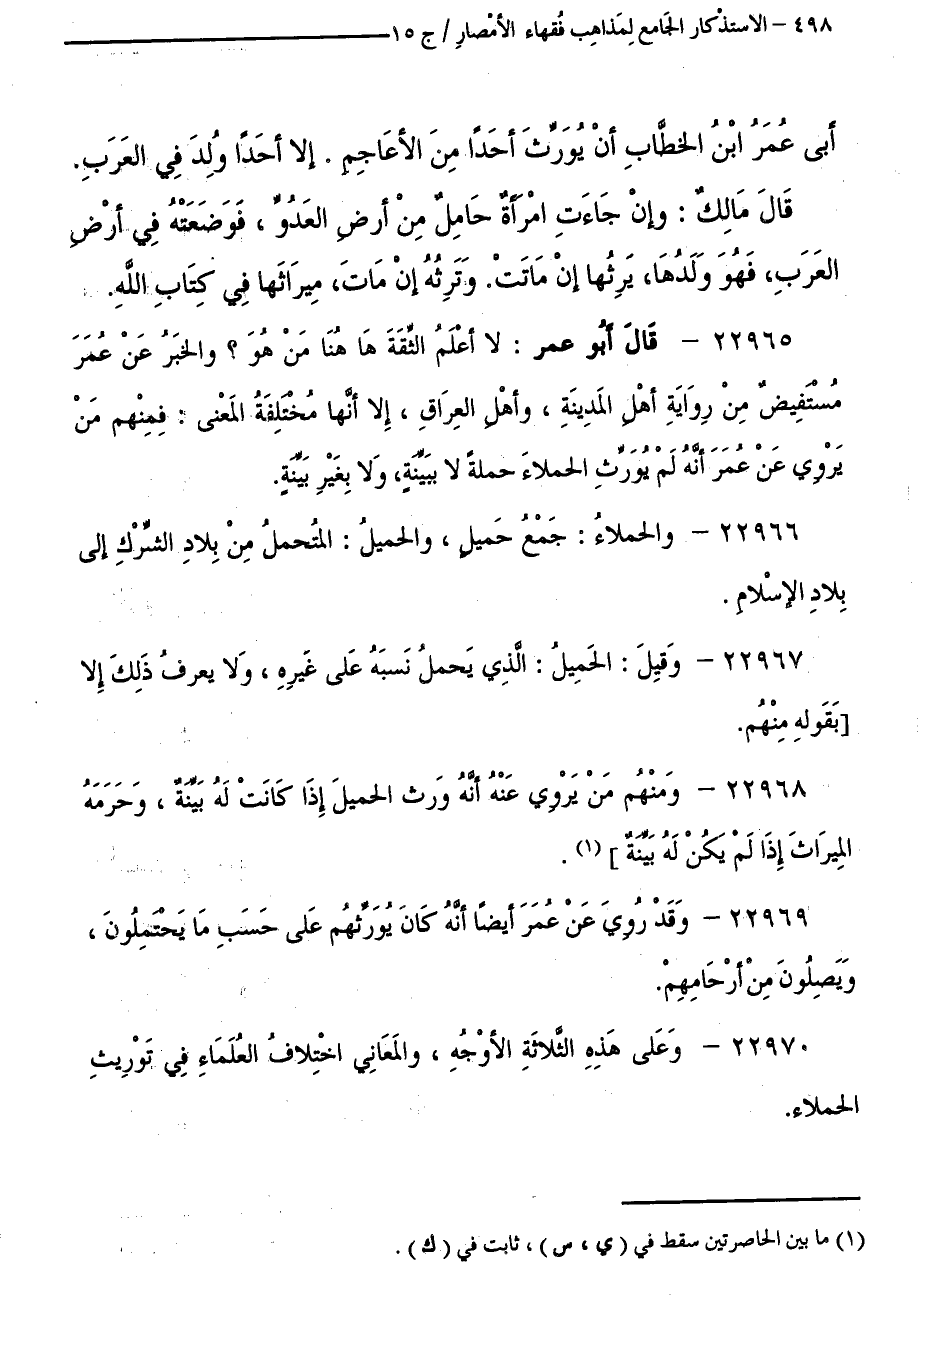 ٤٩٨ – الاستذْكار الجَامع لِمَذاهِب فُقهاء الأمْصارِ / ج ١٥
أبى عُمَرُ ابْنُ الخطَّابِ أنْ يُوَرِّثَ أحَدًا مِنَ الأعَاجِمِ . إلا أحَدًا وُلِدَ فِي العَرَبِ.
قَالَ مَالِكٌ : وإنْ جَاءَتِ امْرَأَةٌ حَامِلٌ مِنْ أرضِ العَدُوِّ ، فَوَضَعَتْهُ فِي أرْضِ
العَرَبِ، فَهُوَ وَلَدُهَا، يَرِثُها إنْ مَاتَتْ. وَتَرِثُهُ إنْ ماتَ، مِيرَاثَها فِي كِتَابِ اللَّهِ.
٢٢٩٦٥ – قَالَ أَبُو عمر : لا أعْلَمُ الثِّقَةَ هَا هُنَا مَنْ هُوَ ؟ والخَبَرُ عَنْ عُمَرَ
مُسْتَفِيضٌ مِنْ رِوَايَةِ أهْلِ المَدِينَةِ ، وأهْلِ العِرَاقِ ، إلا أنَّها مُخْتَلِفَةُ المَعْنى : فِمِنْهم مَنْ
يَرْوِي عَنْ عُمَرَ أنَّهُ لَمْ يُوَرِّثِ الحملاءَ حملةً لا ببَيِّنَةٍ، وَلا بِغَيْرِ بَيِّنَةٍ.
٢٢٩٦٦ – والحملاءُ : جَمْعُ حَميلٍ ، والحميلُ : المُتحملُ مِنْ بِلادِ الشِّرْكِ إلى
بِلادِ الإسْلامِ .
٢٢٩٦٧ – وَقِيلَ : الحَمِيلُ : الَّذِي يَحملُ نَسبَهُ عَلى غَيرِهِ ، وَلا يعرفُ ذَلِكَ إلا
[بَقَولهِ مِنْهُم.
٢٢٩٦٨ – وَمَنْهُم مَنْ يَرْوِي عَنْهُ أنَّهُ وَرث الحميلَ إذَا كَانَتْ لَهُ بَيِّنَةٌ ، وَحَرَمَهُ
المِيرَاثَ إذَا لَمْ يَكُنْ لَهُ بَيِّنَةٌ ] (١) .
٢٢٩٦٩ – وَقَدْ رُوِيَ عَنْ عُمَرَ أيضًا أنَّهُ كَانَ يُوَرِّثهُم عَلى حَسَبِ مَا يَحْتَمِلُونَ ،
وَيَصِلُونَ مِنْ أرْحَامِهِمْ.
٢٢٩٧٠ – وَعَلى هَذِهِ الثَّلاثَةِ الأوْجُهِ ، والمَعَانِي اخْتِلافُ العُلَمَاءِ فِي تَوْرِيثِ
الحملاء.
(١) ما بين الحاصرتين سقط في (ي ، س) ، ثابت في (ك) .